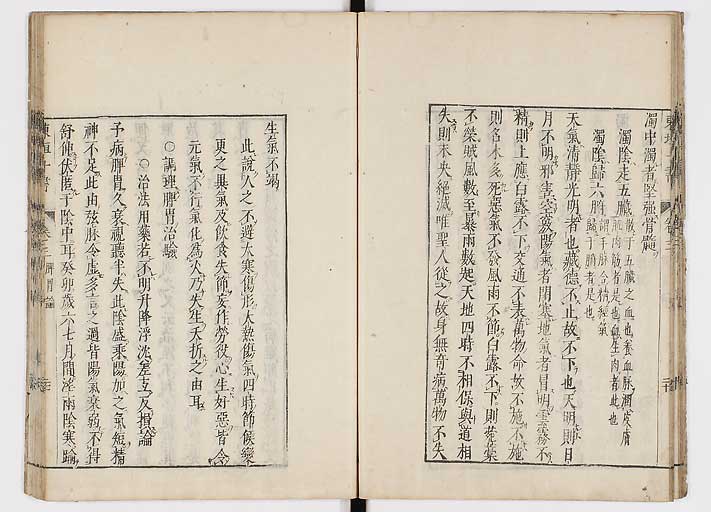 濁中濁者堅强骨髓
濁陰走五臟散于五臟之血也養血脉潤皮膚
肌肉筋者是也血生肉者此也
濁陰歸六腑謂毛脉合精經氣
歸于腑者是也
天氣清靜光明者也藏德不止故不下也天明則日
月不明邪害空竅陽氣者閉塞地氣者冒明雲霧不
精則上應白露不下交通不表萬物命故不施不施
則名木多死惡氣不發風雨不節白露不下則菀藁
不榮賊風數至暴雨數起天地四時不相保與道相
失則未央絕滅唯聖人從之故身無奇病萬物不失
生氣不竭
此說人之不避大寒傷形大熱傷氣四時節候變
更之異氣及飲食失節妄作勞役心生好惡皆令
元氣不行氣化為火乃失生夭折之由耳
○調理脾胃治驗
○治法用藥若不明升降浮沉差互反損論
予病脾胃久衰視聽半失此陰盛乘陽加之氣短精
神不足此由弦脉令虛多言之過皆陽氣衰弱不得
舒伸伏匿于陰中耳癸卯歲六七月間淫雨陰寒踰